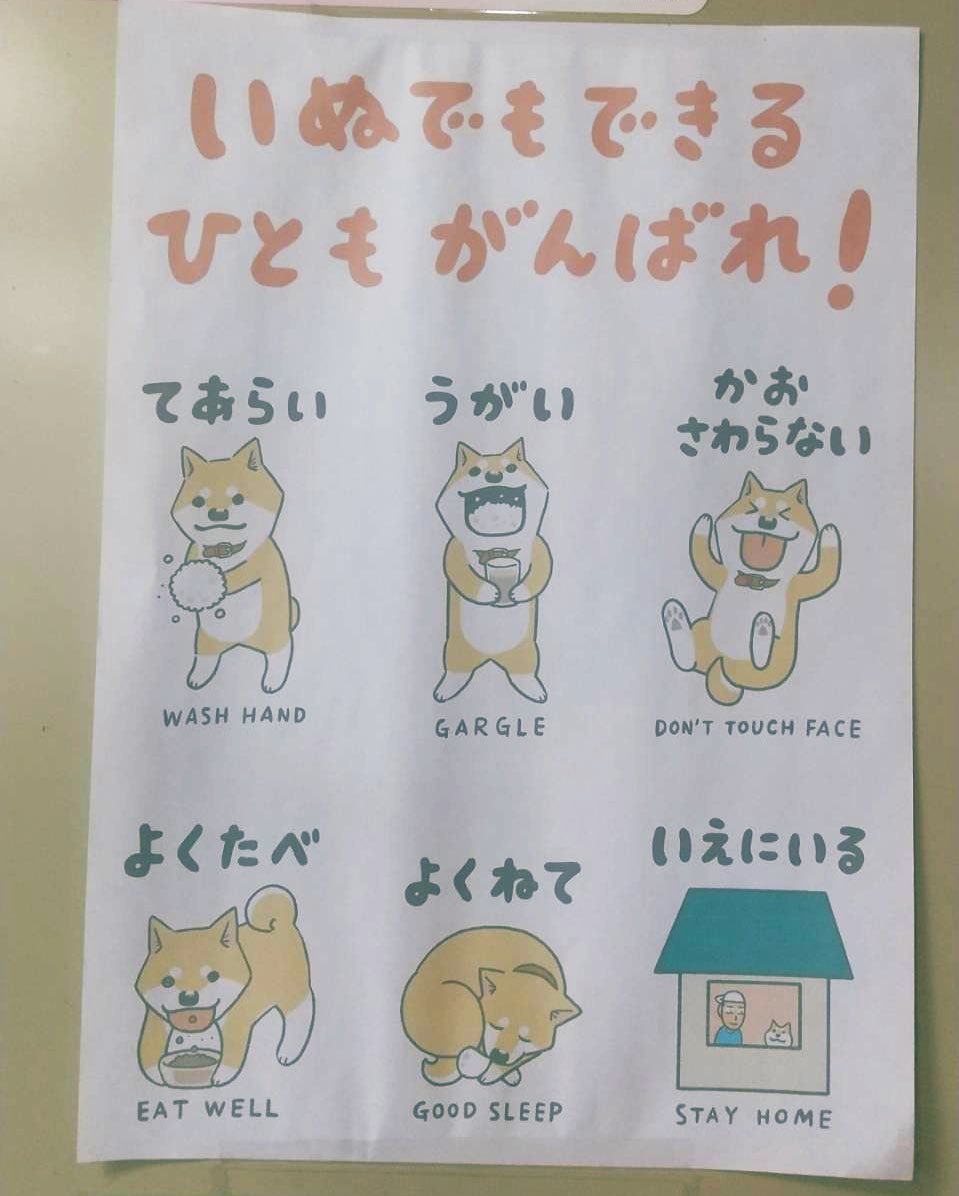 いぬでもできる
ひともがんばれ!
てあらい
WASH HAND
うがい
GARGLE
かお
さわらない
DON'T TOUCH FACE
よくたべ
EAT WELL
よくねて
GOOD SLEEP
いえにいる
STAY HOME